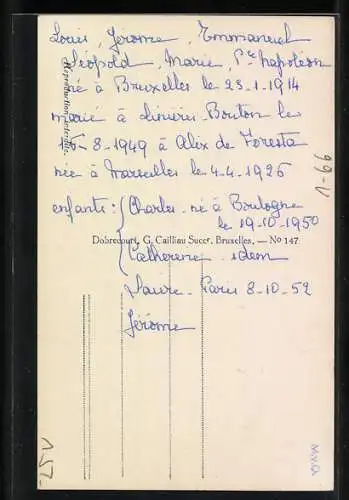 Louis, Jerome, Emmanuel
Léopold, Marie, Pce Napoléon
né à Bruxelles le 23-1-1914
marié à Linières-Bouton le
16-8-1949 à Alix de Foresta
née à Marseille le 4-4-1926
enfants: Charles né à Boulogne
le 19-10-1950
Dobrecourt, G. Cailliau Succr. Bruxelles. — No 147
Catherine idem
Laure - Paris 8-10-52
Jérome
Reproduction interdite.
99-V
157